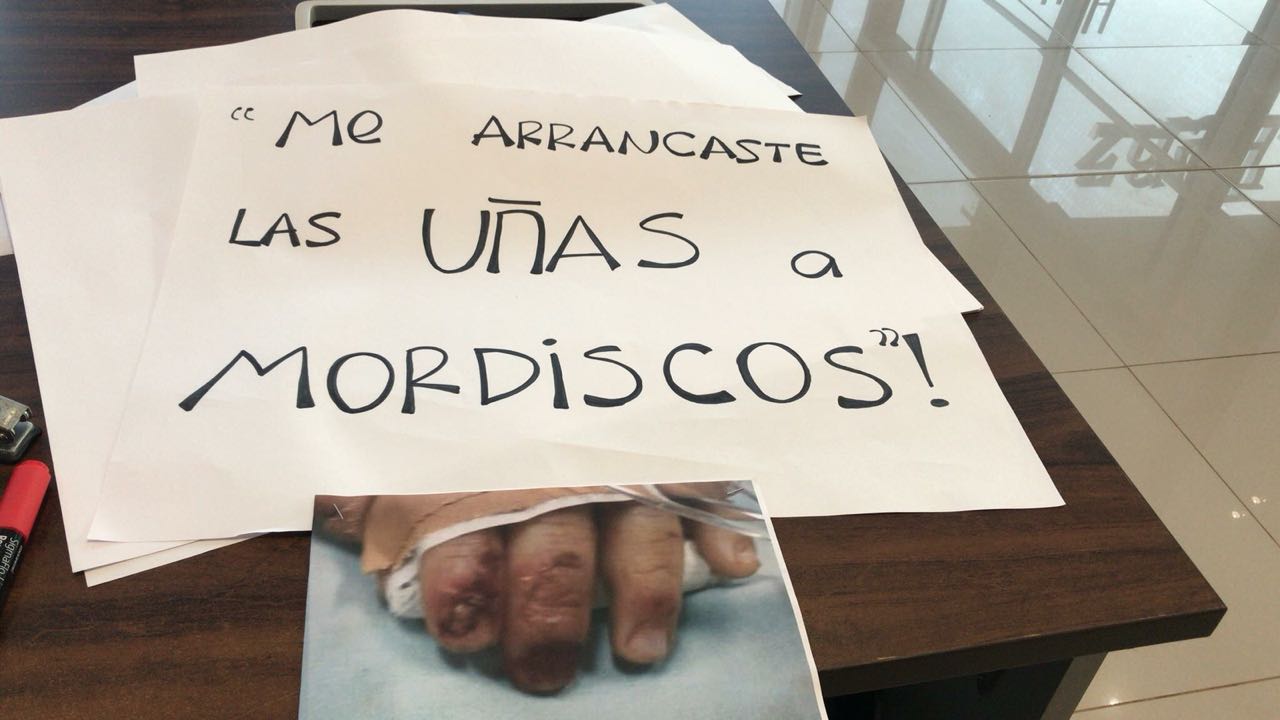 “Me ARRANCASTE
LAS UÑAS a
MORDiSCOS”!